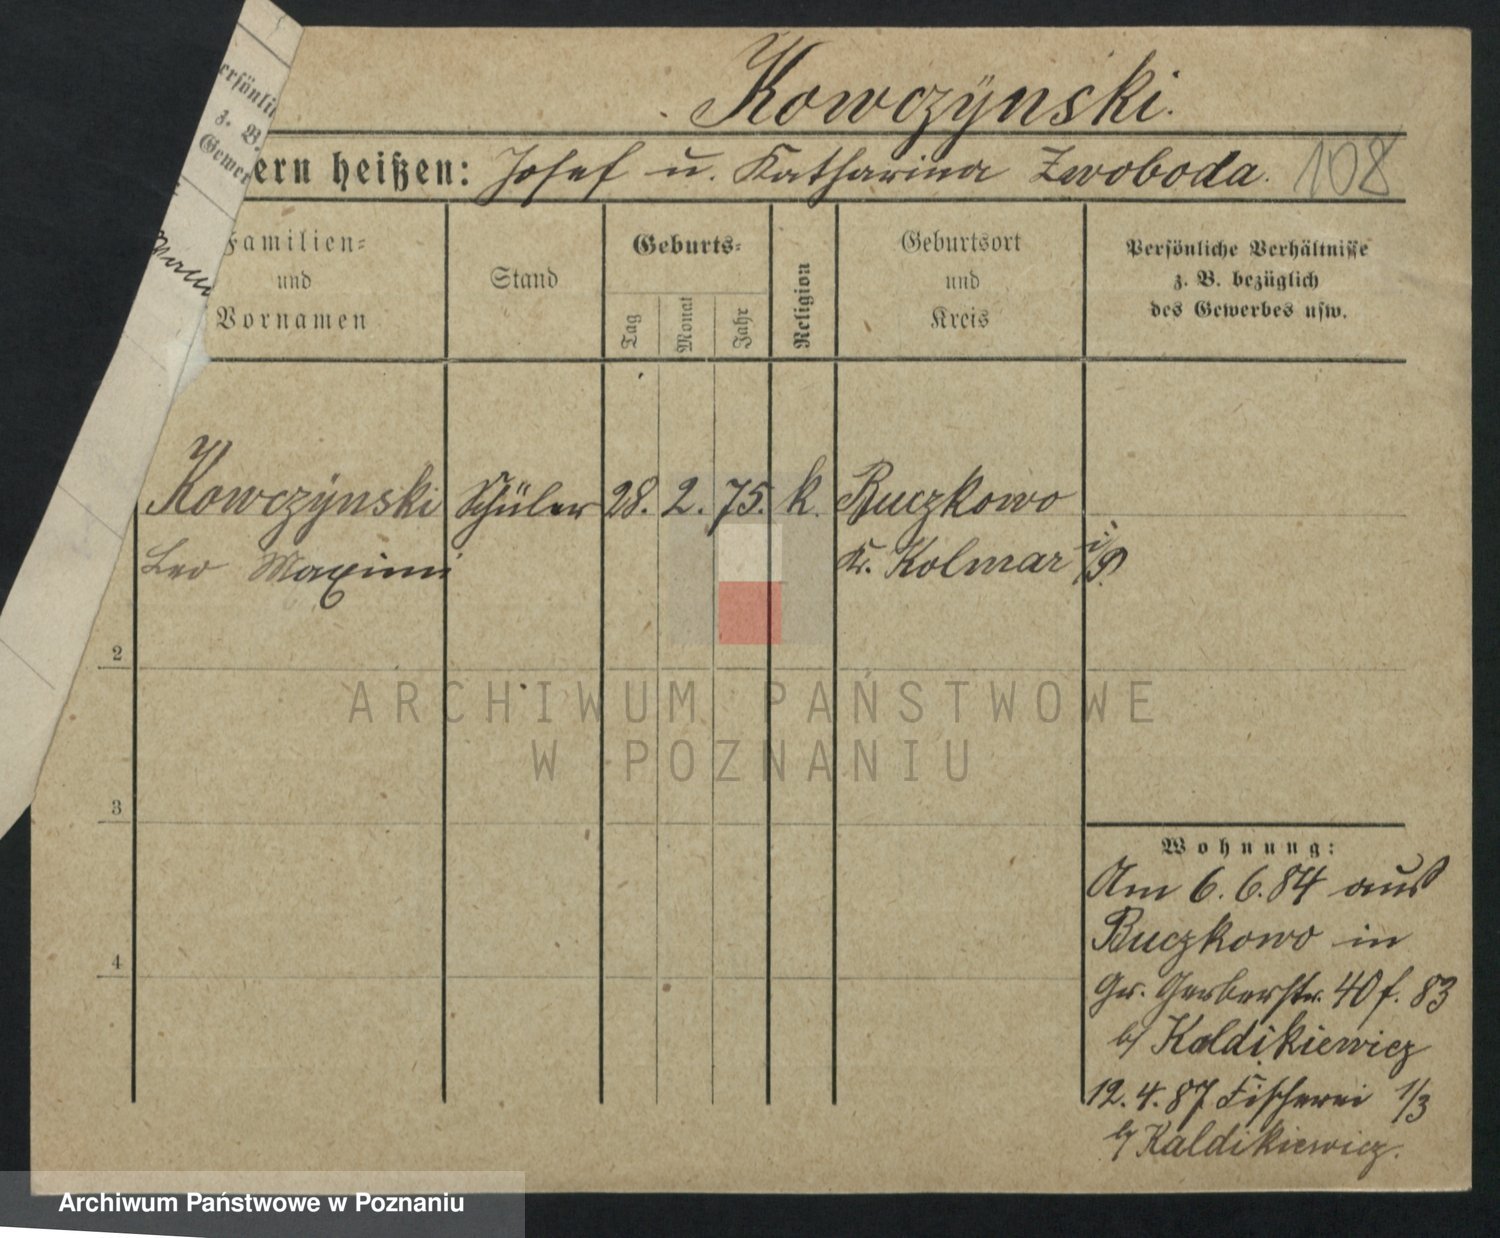 Kowczÿnski.
ern heißen: Josef u. Katharina Zwoboda. 108
ersönli
z. B.
Gewer
Familien=
und
Vornamen
Stand
Geburts=
Tag
Monat
Jahr
Religion
Geburtsort
und
Kreis
Persönliche Verhältnisse
z. B. bezüglich
des Gewerbes usw.
Kowczÿnski Schüler 28. 2. 75. k. Buczkowo
Leo Maximi Kr. Kolmar i/P.
2
3
4
Wohnung:
Am 6. 6. 84 aus
Buczkowo in
Gr. Gerberstr. 40 f. 83
b/ Kaldikiewicz
12. 4. 87 Fischerei 1/3
b/ Kaldikiewicz.
ARCHIWUM PAŃSTWOWE
W POZNANIU
Archiwum Państwowe w Poznaniu